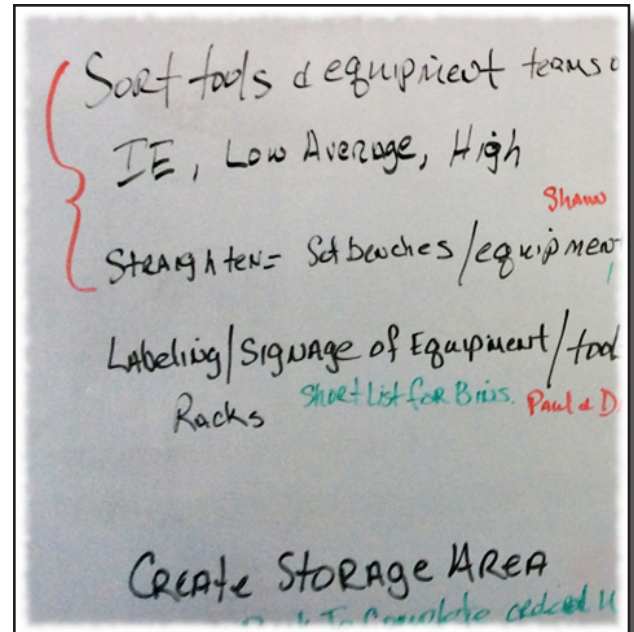 Sort tools & equipment teams
IE, Low Average, High
Shawn
Straighten= Set benches/equipmen
Labeling/Signage of Equipment/tool
Racks Short List for Bins. Paul & D
Create Storage Area
To Complete